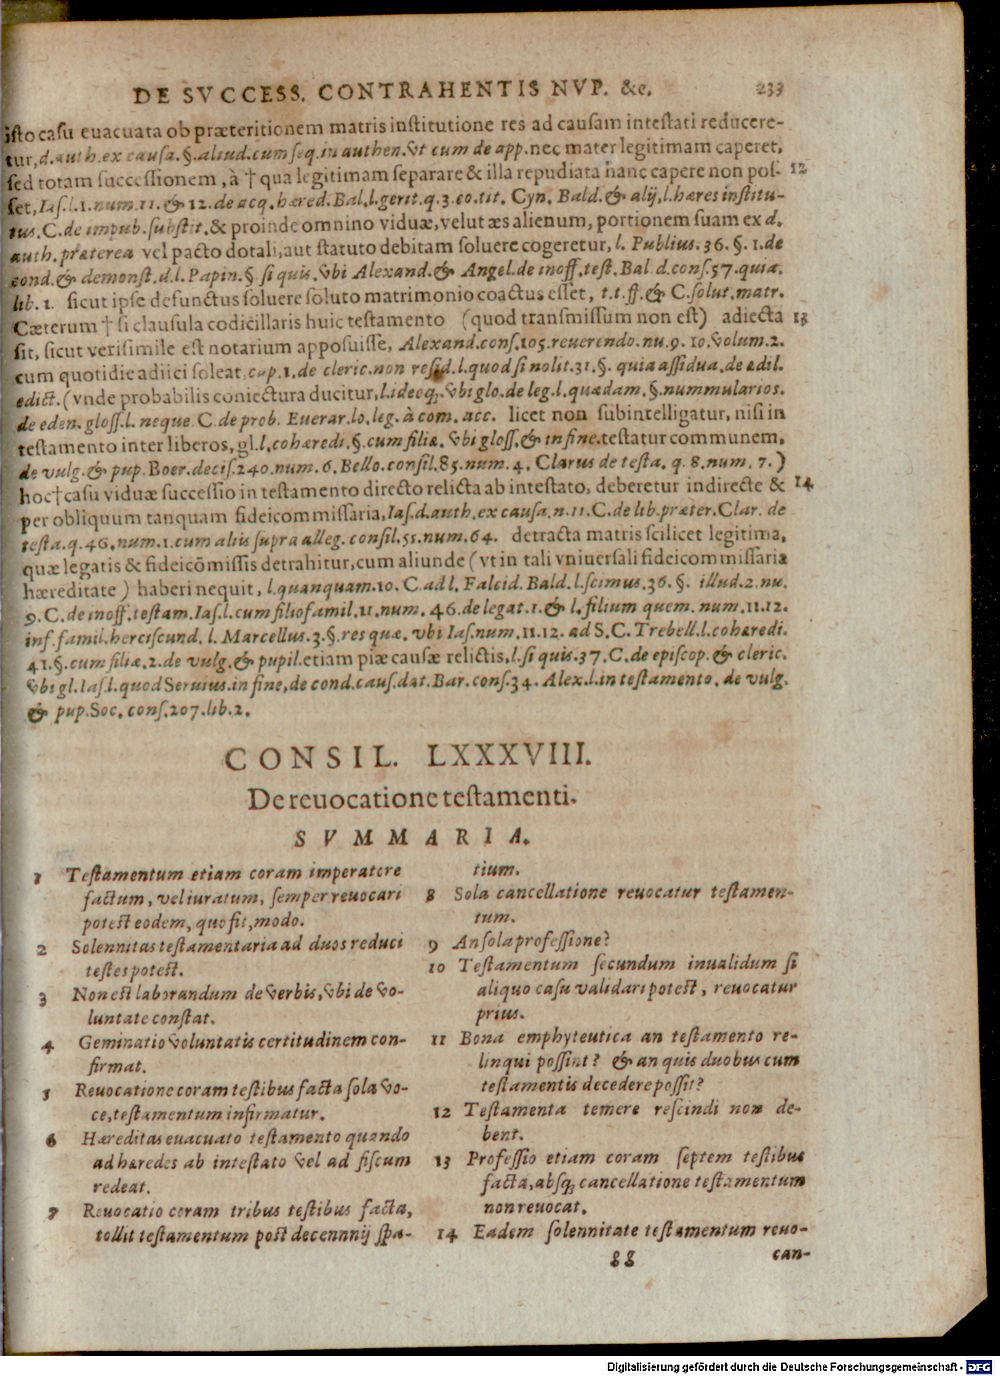 DE SVCCESS. CONTRAHENTIS NVP. &c. 233
isto casu euacuata ob præteritionem matris institutione res ad causam intestati reducere-
tur, d. auth. ex causa. §. aliud. cum seq. in authen. vt cum de app. nec mater legitimam caperet,
sed totam successionem, à † qua legitimam separare & illa repudiata hanc capere non pos- 12
set, Ias. l. 1. num. 11. & 12. de acq. hæred. Bal. l. gerit. q. 3. eo. tit. Cyn. Bald. & alij, l. hæres institu-
tus. C. de impub. substit. & proinde omnino viduæ, velut æs alienum, portionem suam ex d.
auth. præterea vel pacto dotali, aut statuto debitam soluere cogeretur, l. Publius. 36. §. 1. de
cond. & demonst. d. l. Papin. § si quis. vbi Alexand. & Angel. de inoff. test. Bal d. cons. 57. quiæ.
lib. 1. sicut ipse defunctus soluere soluto matrimonio coactus esset, t. t. ff. & C. solut. matr.
Cæterum † si clausula codicillaris huic testamento (quod transmissum non est) adiecta 13
sit, sicut verisimile est notarium apposuisse, Alexand. cons. 105. reuerendo. nu. 9. 10. volum. 2.
cum quotidie adiici soleat. cap. 1. de cleric. non resid. l. quod si nolit. 31. §. quia assidua. de ædil.
edict. (vnde probabilis coniectura ducitur, l. ideoq; vbi glo. de leg. l. quædam. §. nummularios.
de eden. gloss. l. neque C. de prob. Euerar. lo. leg. à com. acc. licet non subintelligatur, nisi in
testamento inter liberos, gl. l. cohæredi. §. cum filiæ. vbi gloss. & in fine. testatur communem,
de vulg. & pup. Boer. decis. 240. num. 6. Bello. consil. 85. num. 4. Clarus de testa. q. 8. num. 7. )
hoc † casu viduæ successio in testamento directo relicta ab intestato, deberetur indirecte & 14
per obliquum tanquam fideicommissaria, Ias. d. auth. ex causa. n. 11. C. de lib. præter. Clar. de
testa. q. 46. num. 1. cum aliis supra alleg. consil. 55. num. 64. detracta matris scilicet legitima,
quæ legatis & fideicōmissis detrahitur, cum aliunde (vt in tali vniuersali fideicommissaria
hæreditate) haberi nequit, l. quanquam. 10. C. ad l. Falcid. Bald. l. scimus. 36. §. illud. 2. nu.
9. C. de inoff. testam. Ias. l. cum filiofamil. 11. num. 46. de legat. 1. & l. filium quem. num. 11. 12.
inf. famil. herciscund. l. Marcellus. 3. §. res quæ. vbi Ias. num. 11. 12. ad S. C. Trebell. l. cohæredi.
41. §. cum filiæ. 2. de vulg. & pupil. etiam piæ causæ relictis, l. si quis. 37. C. de episcop. & cleric.
vbi gl. Ias. l. quod Seruius. in fine, de cond. caus. dat. Bar. cons. 34. Alex. l. in testamento. de vulg.
& pup. Soc. cons. 207. lib. 2.
CONSIL. LXXXVIII.
De reuocatione testamenti.
SVMMARIA.
1 Testamentum etiam coram imperatore
factum, vel iuratum, semper reuocari
potest eodem, quo fit, modo.
2 Solennitas testamentaria ad duos reduci
testes potest.
3 Non est laborandum de verbis, vbi de vo-
luntate constat.
4 Geminatio voluntatis certitudinem con-
firmat.
5 Reuocatione coram testibus facta sola vo-
ce, testamentum infirmatur.
6 Hæreditas euacuato testamento quando
ad hæredes ab intestato vel ad fiscum
redeat.
7 Reuocatio coram tribus testibus facta,
tollit testamentum post decennnij spa-
tium.
8 Sola cancellatione reuocatur testamen-
tum.
9 An sola professione?
10 Testamentum secundum inualidum si
aliquo casu validari potest, reuocatur
prius.
11 Bona emphyteutica an testamento re-
linqui possint? & an quis duobus cum
testamentis decedere possit?
12 Testamenta temere rescindi non de-
bent.
13 Professio etiam coram septem testibus
facta, absq; cancellatione testamentum
non reuocat.
14 Eadem solennitate testamentum reuo-
gg can-
Digitalisierung gefördert durch die Deutsche Forschungsgemeinschaft - DFG